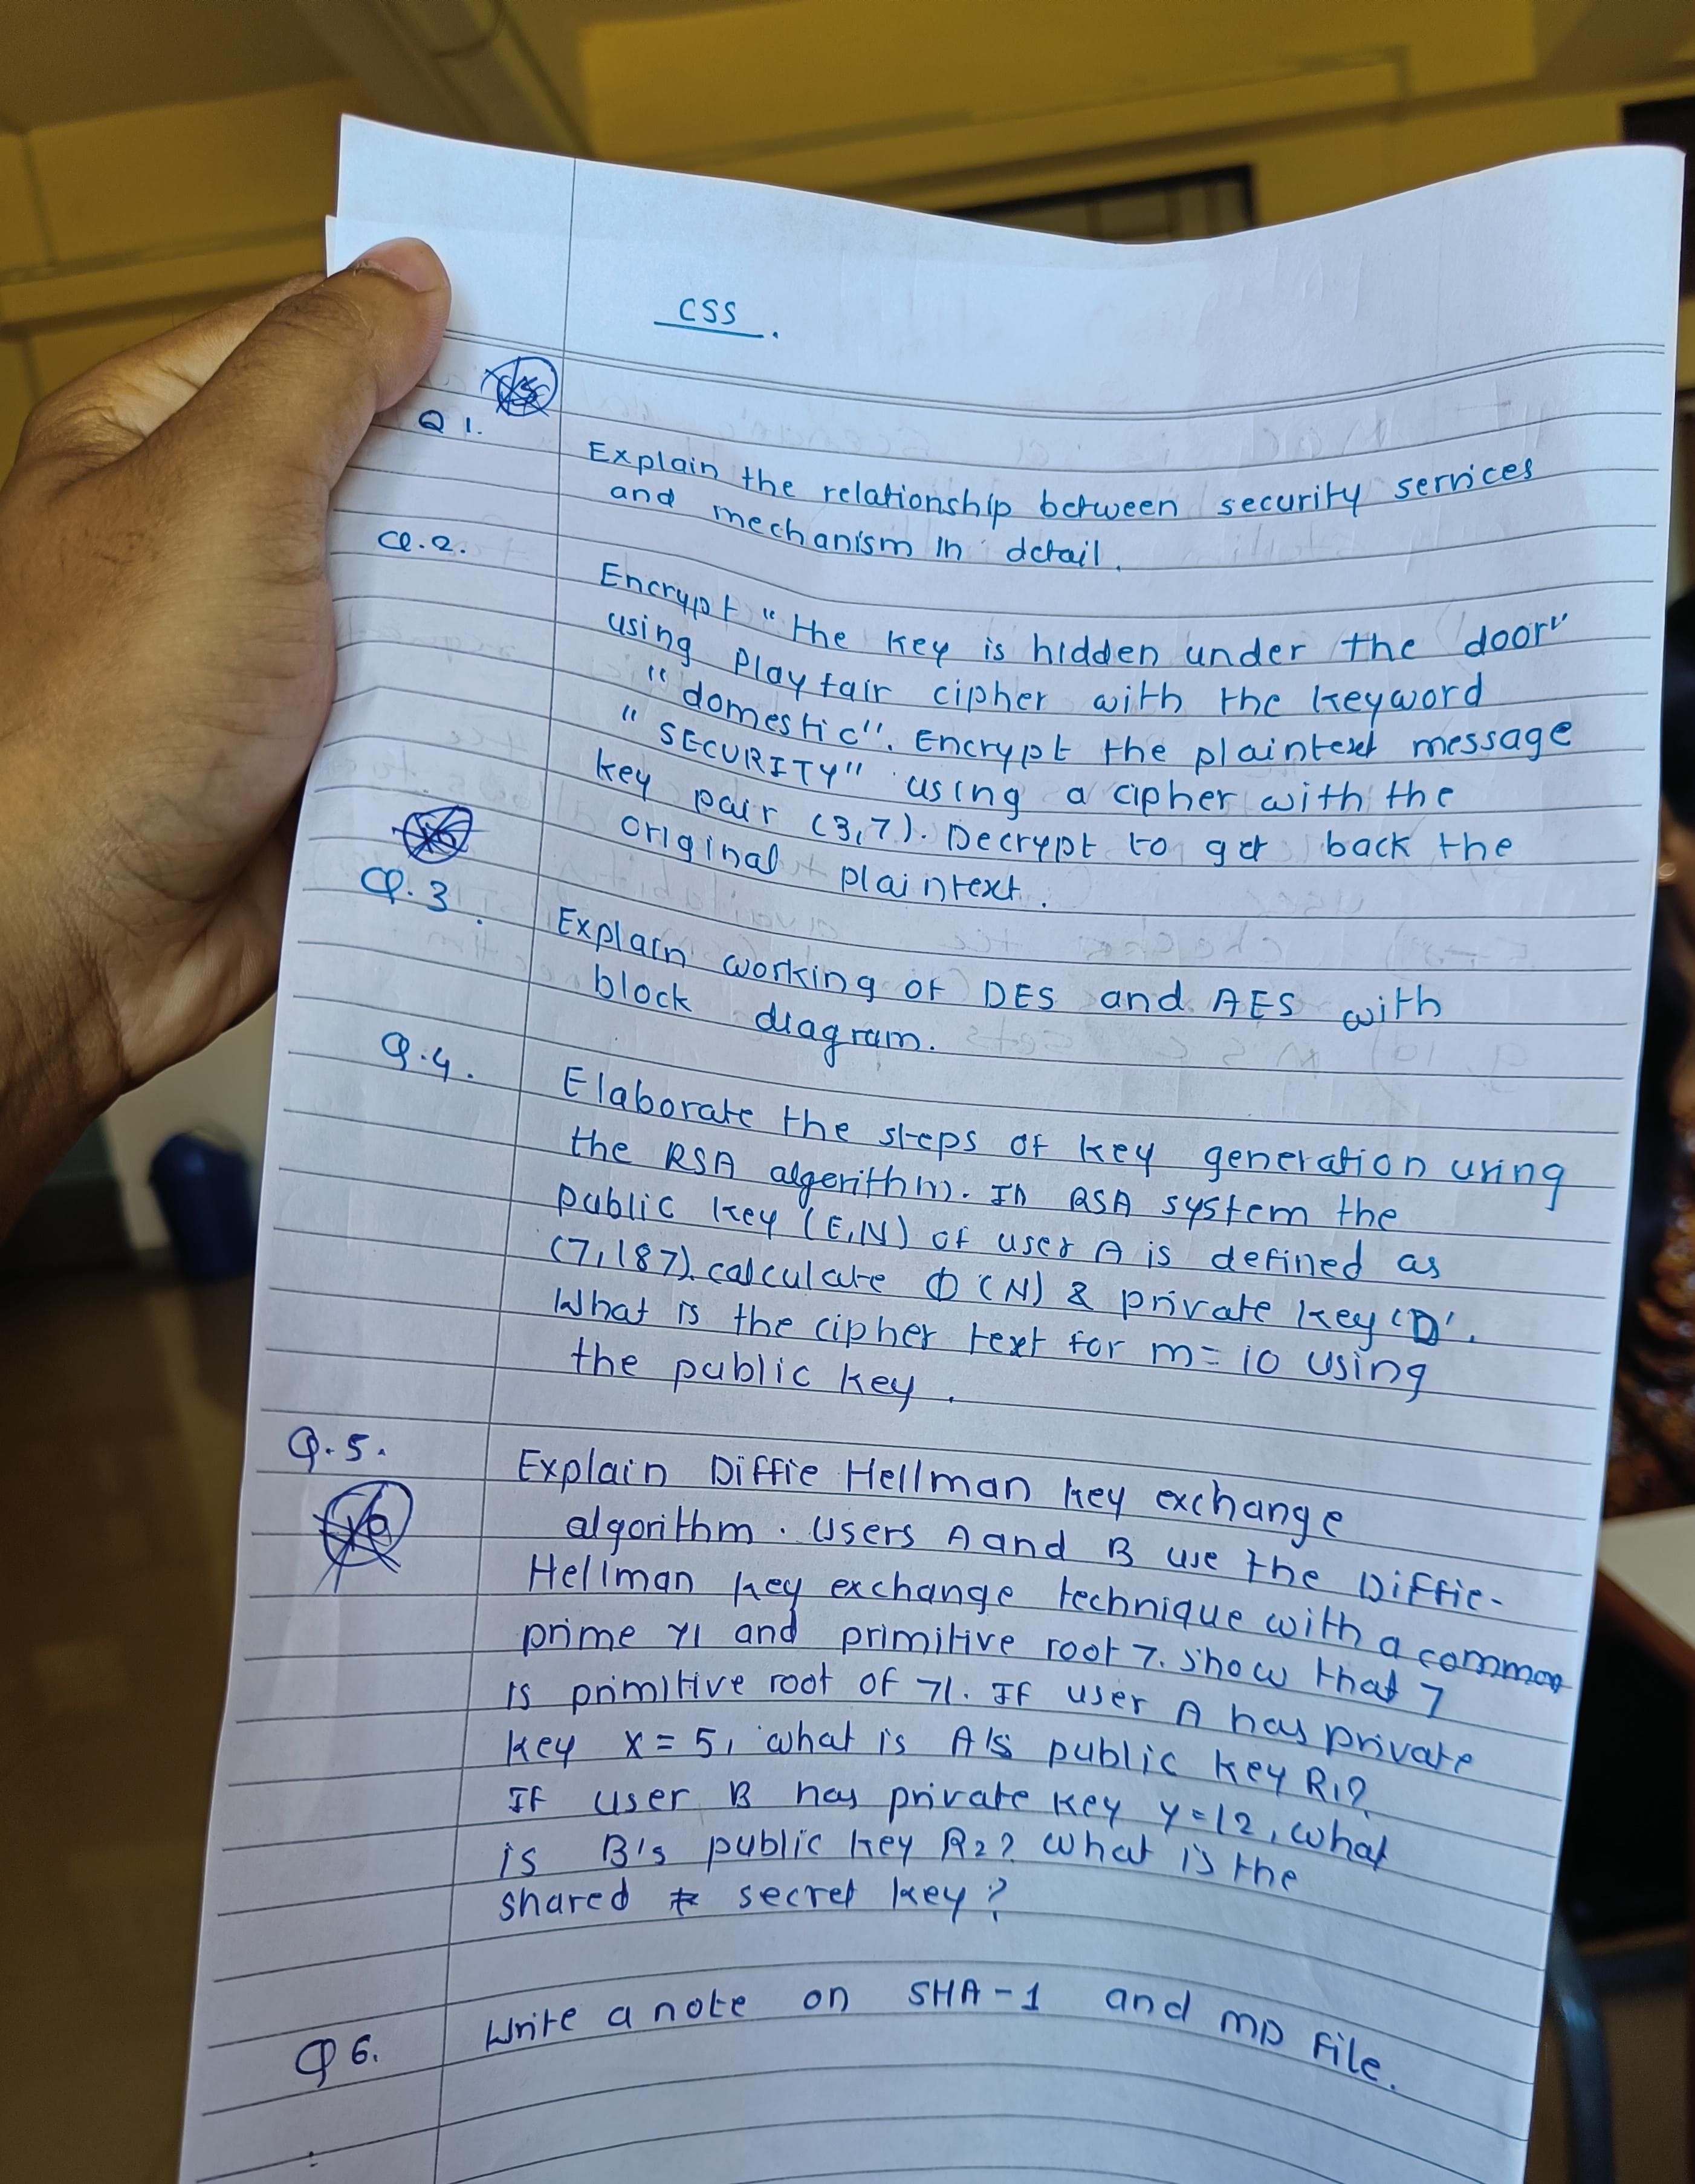 CSS.
Q 1.
Explain the relationship between security services
and mechanism in detail.
Q.2.
Encrypt "the key is hidden under the door"
using Playfair cipher with the keyword
"domestic". Encrypt the plaintext message
"SECURITY" using a cipher with the
key pair (3,7). Decrypt to get back the
original plaintext.
Q.3.
Explain working of DES and AES with
block diagram.
Q.4.
Elaborate the steps of key generation using
the RSA algerithm. In RSA system the
public key (E,N) of user A is defined as
(7,187). calculate Φ(N) & private key 'D'.
What is the cipher text for m=10 using
the public key.
Q.5.
Explain Diffie Hellman key exchange
algorithm. Users A and B use the Diffie-
Hellman key exchange technique with a common
prime 71 and primitive root 7. Show that 7
is primitive root of 71. If user A has private
key x=5, what is A's public key R1?
If user B has private key y=12, what
is B's public key R2? What is the
shared secret key?
Q 6.
Write a note on SHA-1 and MD File.